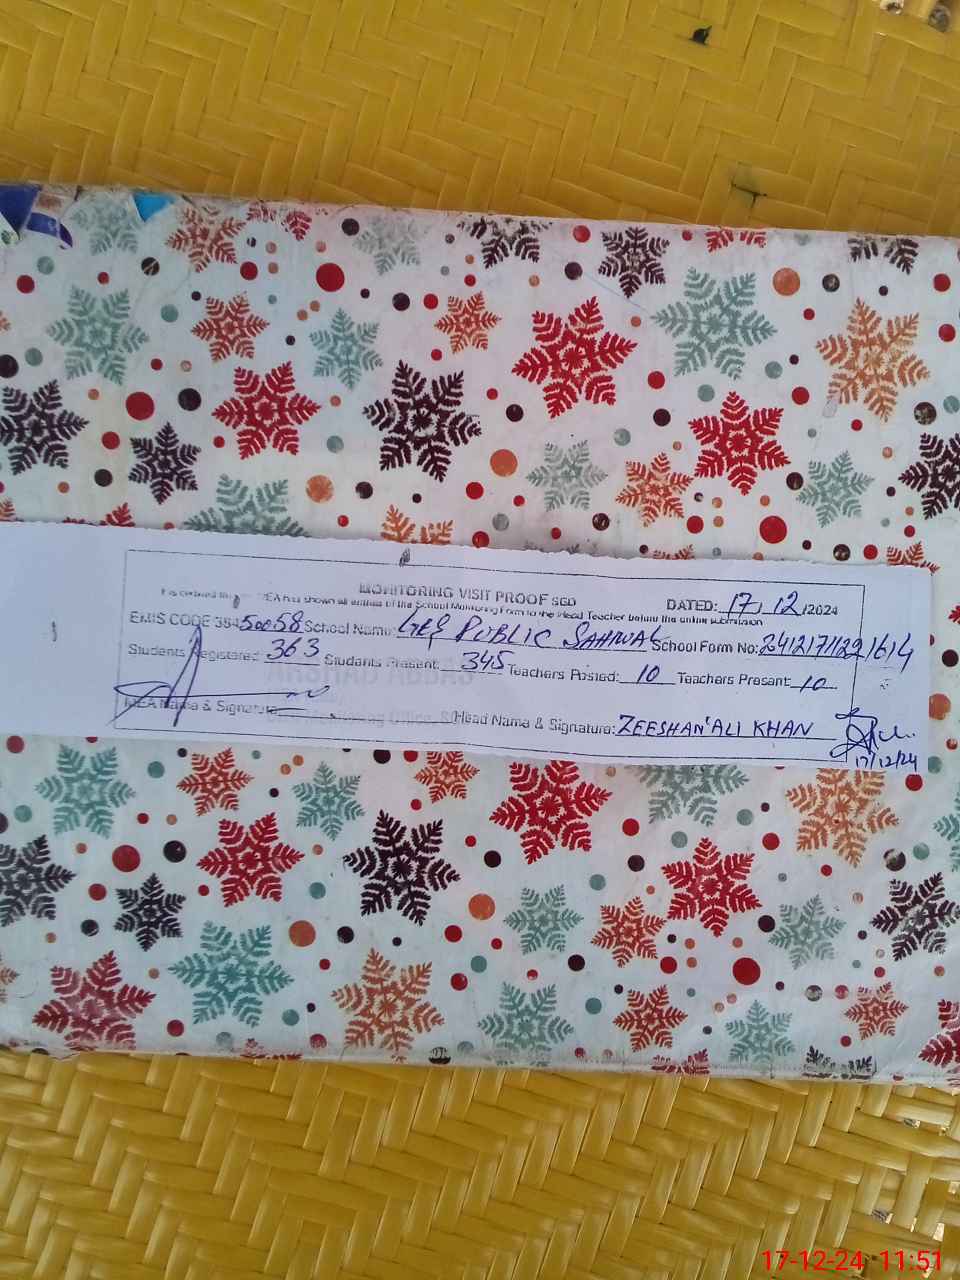 MONITORING VISIT PROOF SGD
DATED: 17/12/2024
MEA has shown all entries of the School Monitoring Form to the Head Teacher before the online submission
EMIS CODE 384 50058 School Name: PUBLIC SAHIWAL School Form No: 2412171122
Students Registered: 363 Students Present: 345 Teachers Posted: 10 Teachers Present: 10
MEA Name & Signature: Head Name & Signature: ZEESHAN ALI KHAN
17/12/24
17-12-24 11:51